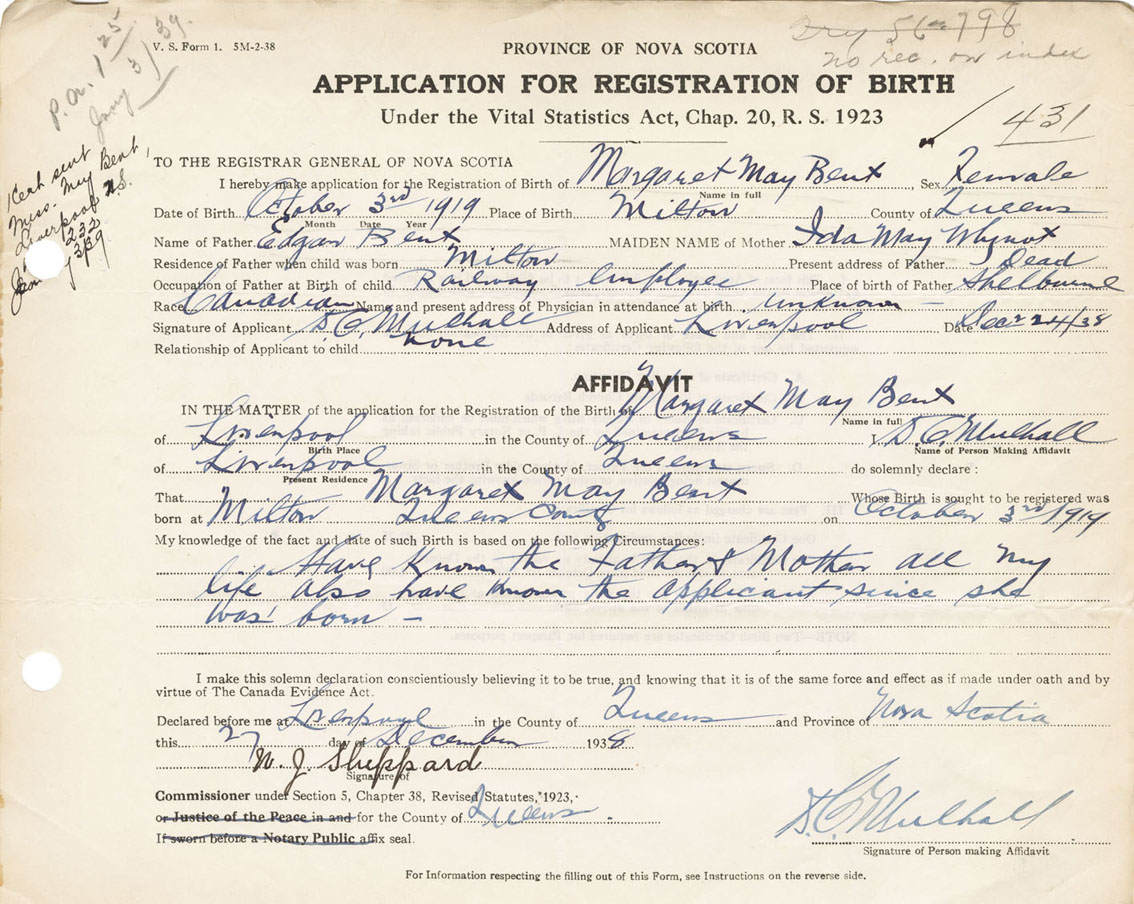 V. S. Form 1. 5M-2-38
P.N. 1 25
Jany 3/39
56-798
no rec. on index
PROVINCE OF NOVA SCOTIA
APPLICATION FOR REGISTRATION OF BIRTH
Under the Vital Statistics Act, Chap. 20, R. S. 1923
431
sent
Miss. May Bent,
Liverpool N.S.
232
3/39
TO THE REGISTRAR GENERAL OF NOVA SCOTIA
I hereby make application for the Registration of Birth of Margaret May Bent Sex Female
Name in full
Date of Birth October 3rd 1919 Place of Birth Milton County of Queens
Month Date Year
Name of Father Edgar Bent MAIDEN NAME of Mother Ida May Whynot
Residence of Father when child was born Milton Present address of Father Dead
Occupation of Father at Birth of child Railway Employee Place of birth of Father Shelburne
Race Canadian Name and present address of Physician in attendance at birth unknown -
Signature of Applicant D.C. Mulhall Address of Applicant Liverpool Date Dec 24/38
Relationship of Applicant to child none
AFFIDAVIT
IN THE MATTER of the application for the Registration of the Birth of Margaret May Bent
Name in full
of Liverpool in the County of Queens I, D.C. Mulhall
Birth Place Name of Person Making Affidavit
of Liverpool in the County of Queens do solemnly declare :
Present Residence
That Margaret May Bent Whose Birth is sought to be registered was
born at Milton Queens County on October 3rd 1919
My knowledge of the fact and date of such Birth is based on the following Circumstances:
Have known the Father & Mother all my
life also have known the applicant since she
was born -
I make this solemn declaration conscientiously believing it to be true, and knowing that it is of the same force and effect as if made under oath and by
virtue of The Canada Evidence Act.
Declared before me at Liverpool in the County of Queens and Province of Nova Scotia
this 27 day of December 1938
W. J. Sheppard
Signature of
Commissioner under Section 5, Chapter 38, Revised Statutes, 1923,
or Justice of the Peace in and for the County of Queens
If sworn before a Notary Public affix seal.
D.C. Mulhall
Signature of Person making Affidavit
For Information respecting the filling out of this Form, see Instructions on the reverse side.